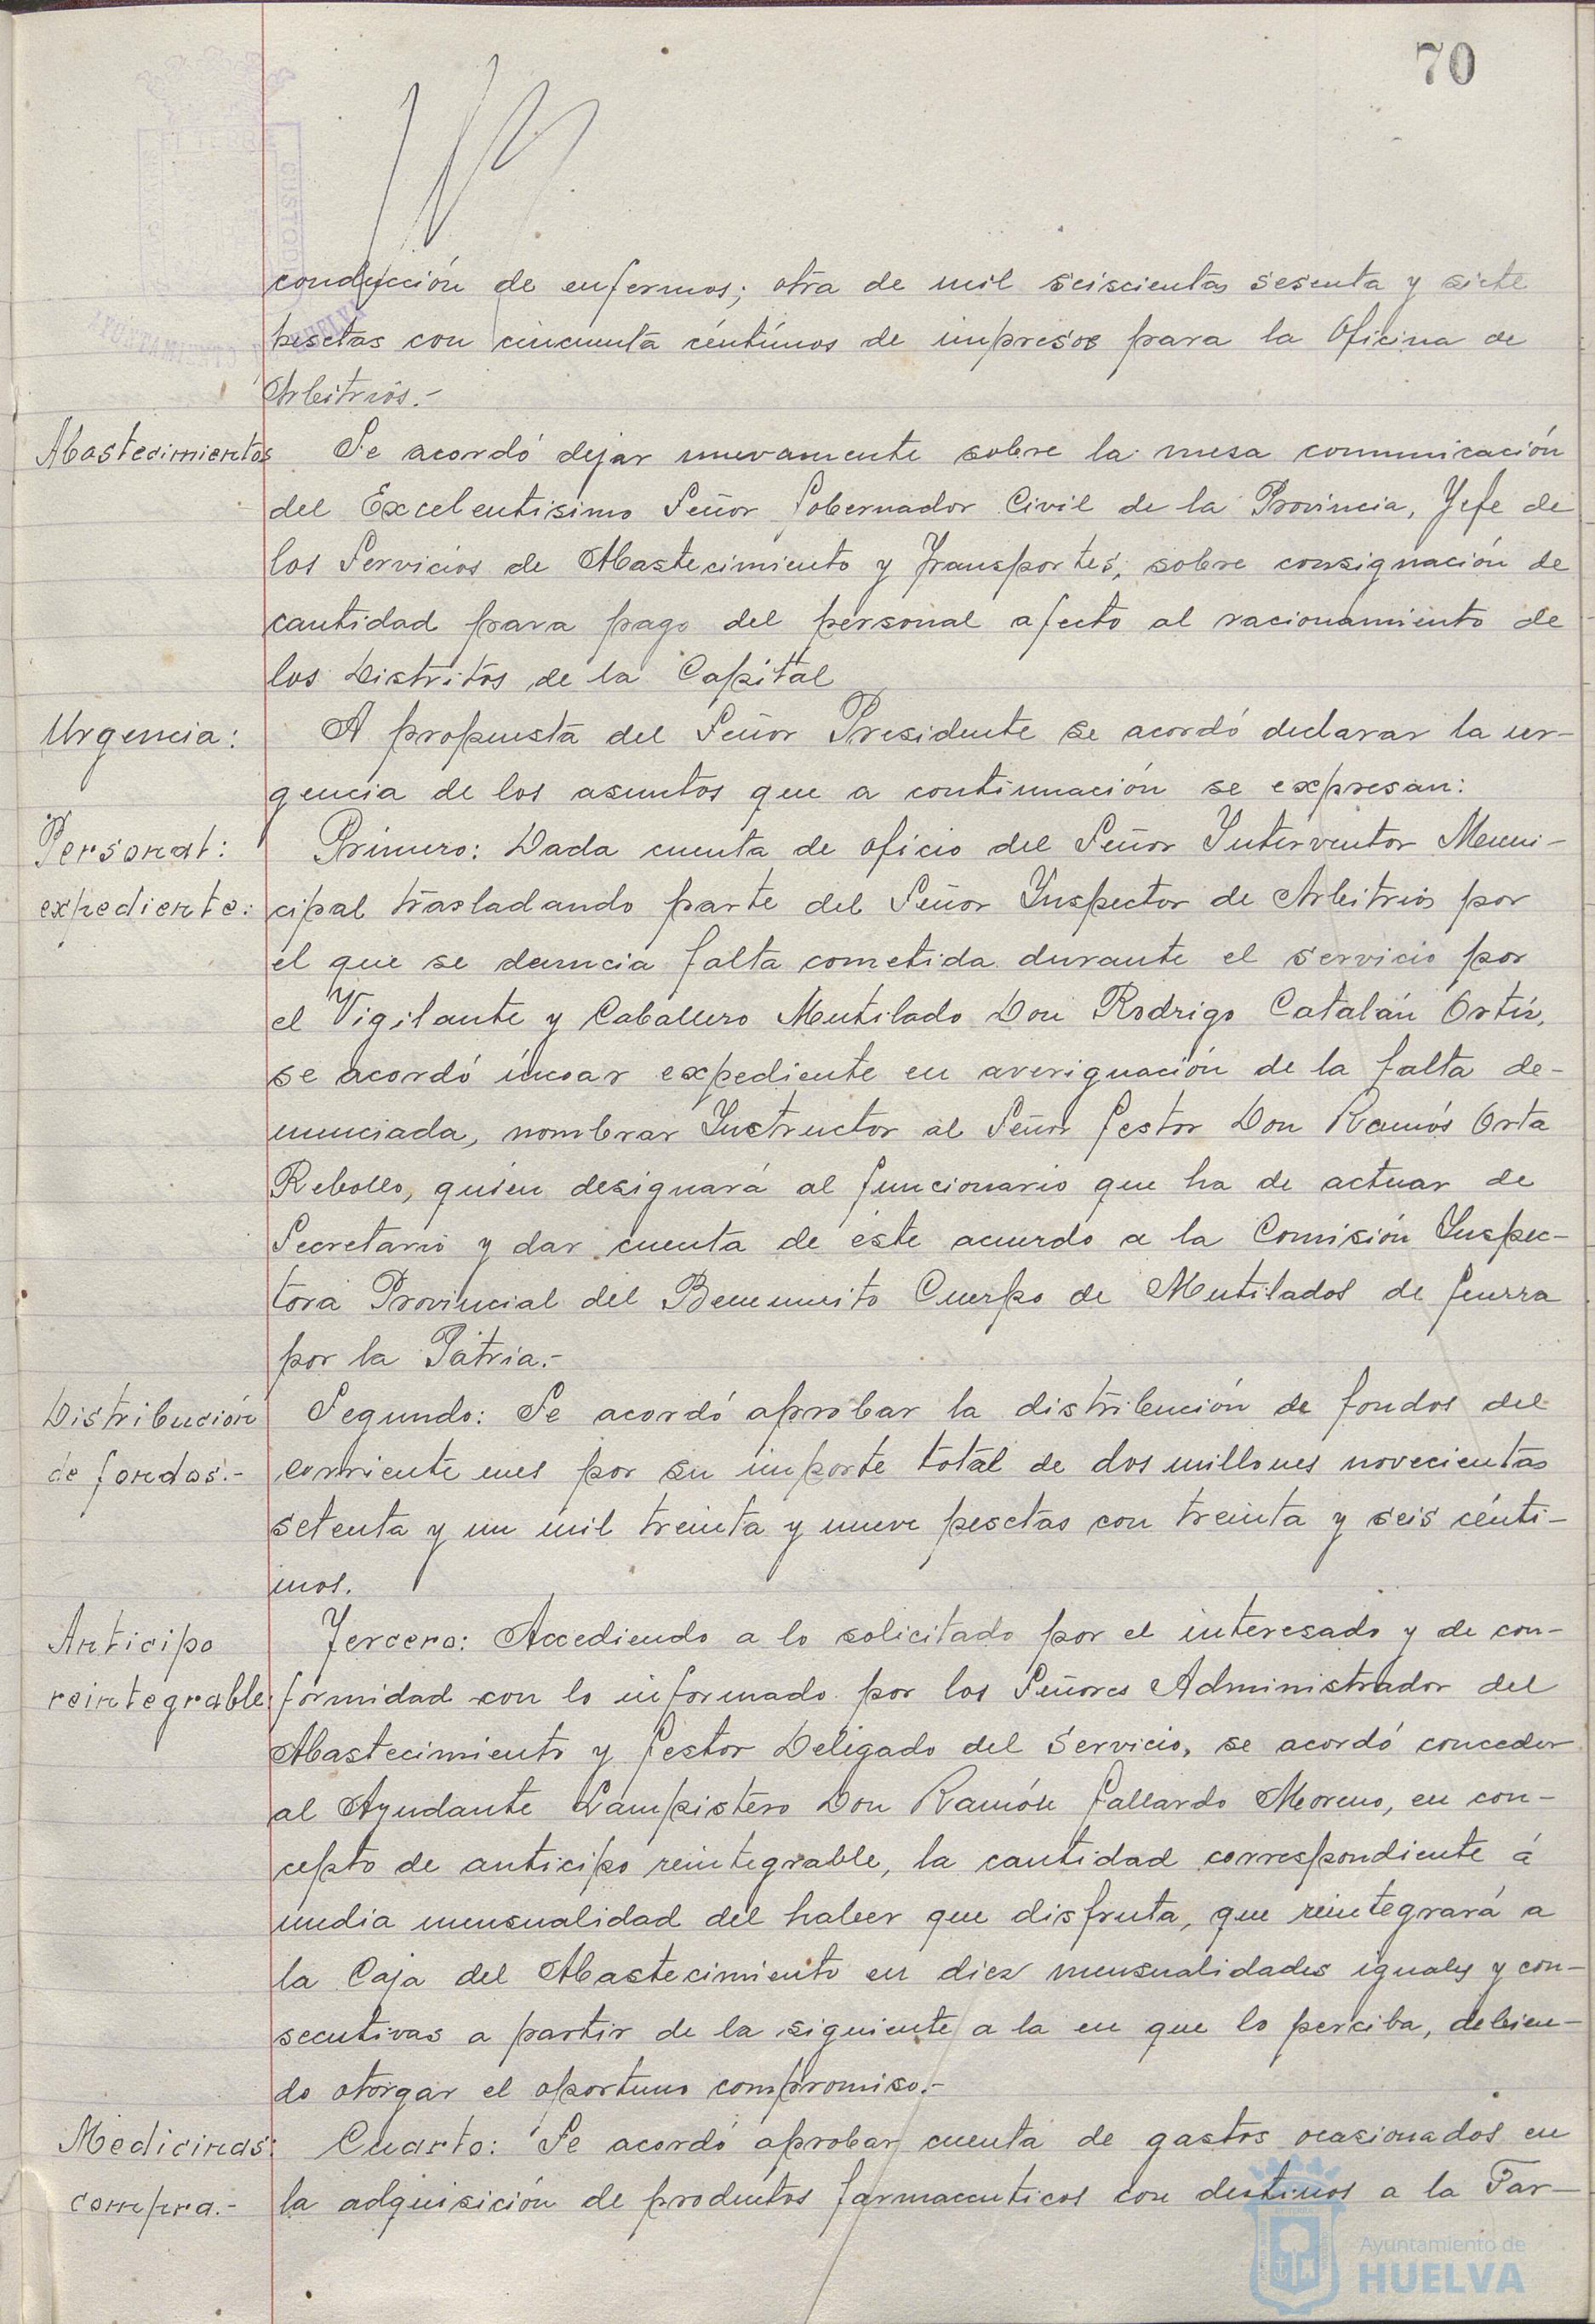 70
conducción de enfermos; otra de mil seiscientas sesenta y siete
pesetas con cincuenta céntimos de impresos para la Oficina de
Arbitrios.-
Abastecimientos Se acordó dejar nuevamente sobre la mesa comunicación
del Excelentisimo Señor Gobernador Civil de la Provincia, Jefe de
los Servicios de Abastecimiento y Transportes, sobre consignación de
cantidad para pago del personal afecto al racionamiento de
los Distritos de la Capital
Urgencia: A propuesta del Señor Presidente se acordó declarar la ur-
gencia de los asuntos que a continuación se expresan:
Personal: Primero: Dada cuenta de oficio del Señor Interventor Muni-
expediente: cipal trasladando parte del Señor Inspector de Arbitrios por
el que se denuncia falta cometida durante el servicio por
el Vigilante y Caballero Mutilado Don Rodrigo Catalán Ortíz,
se acordó incoar expediente en averiguación de la falta de-
nunciada, nombrar Instructor al Señor Gestor Don Ramós Orta
Rebollo, quien designará al funcionario que ha de actuar de
Secretario y dar cuenta de éste acuerdo a la Comisión Inspec-
tora Provincial del Benemérito Cuerpo de Mutilados de Guerra
por la Pátria.-
Distribución Segundo: Se acordó aprobar la distribución de fondos del
de fondos.- corriente mes por su importe total de dos millones novecientas
setenta y un mil treinta y nueve pesetas con treinta y seis cénti-
mos.
Anticipo Tercero: Accediendo a lo solicitado por el interesado y de con-
reintegrable: formidad con lo informado por los Señores Administrador del
Abastecimiento y Gestor Delegado del Servicio, se acordó conceder
al Ayudante Lampistero Don Ramón Gallardo Moreno, en con-
cepto de anticipo reintegrable, la cantidad correspondiente á
media mensualidad del haber que disfruta, que reintegrará a
la Caja del Abastecimiento en diez mensualidades iguales y con-
secutivas a partir de la siguiente a la en que lo perciba, debien-
do otorgar el oportuno compromiso.-
Medicinas: Cuarto: Se acordó aprobar cuenta de gastos ocasionados en
compra.- la adquisición de productos farmaceuticos con destinos a la Far-
Ayuntamiento de
HUELVA